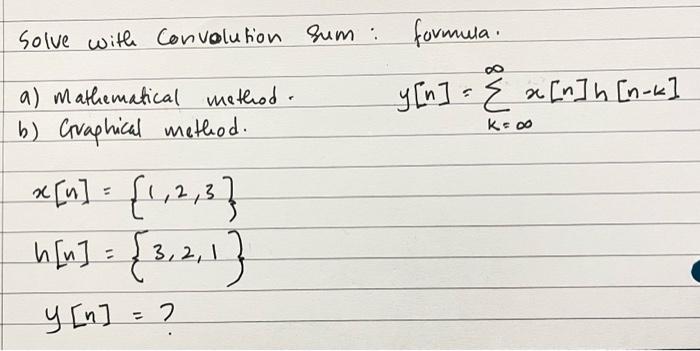 Solve with Convolution Sum : formula.
a) Mathematical method.
b) Graphical method.
y[n] = ∞ Σ k=∞ x[n]h[n-k]
x[n] = {1,2,3}
h[n] = {3,2,1}
y[n] = ?